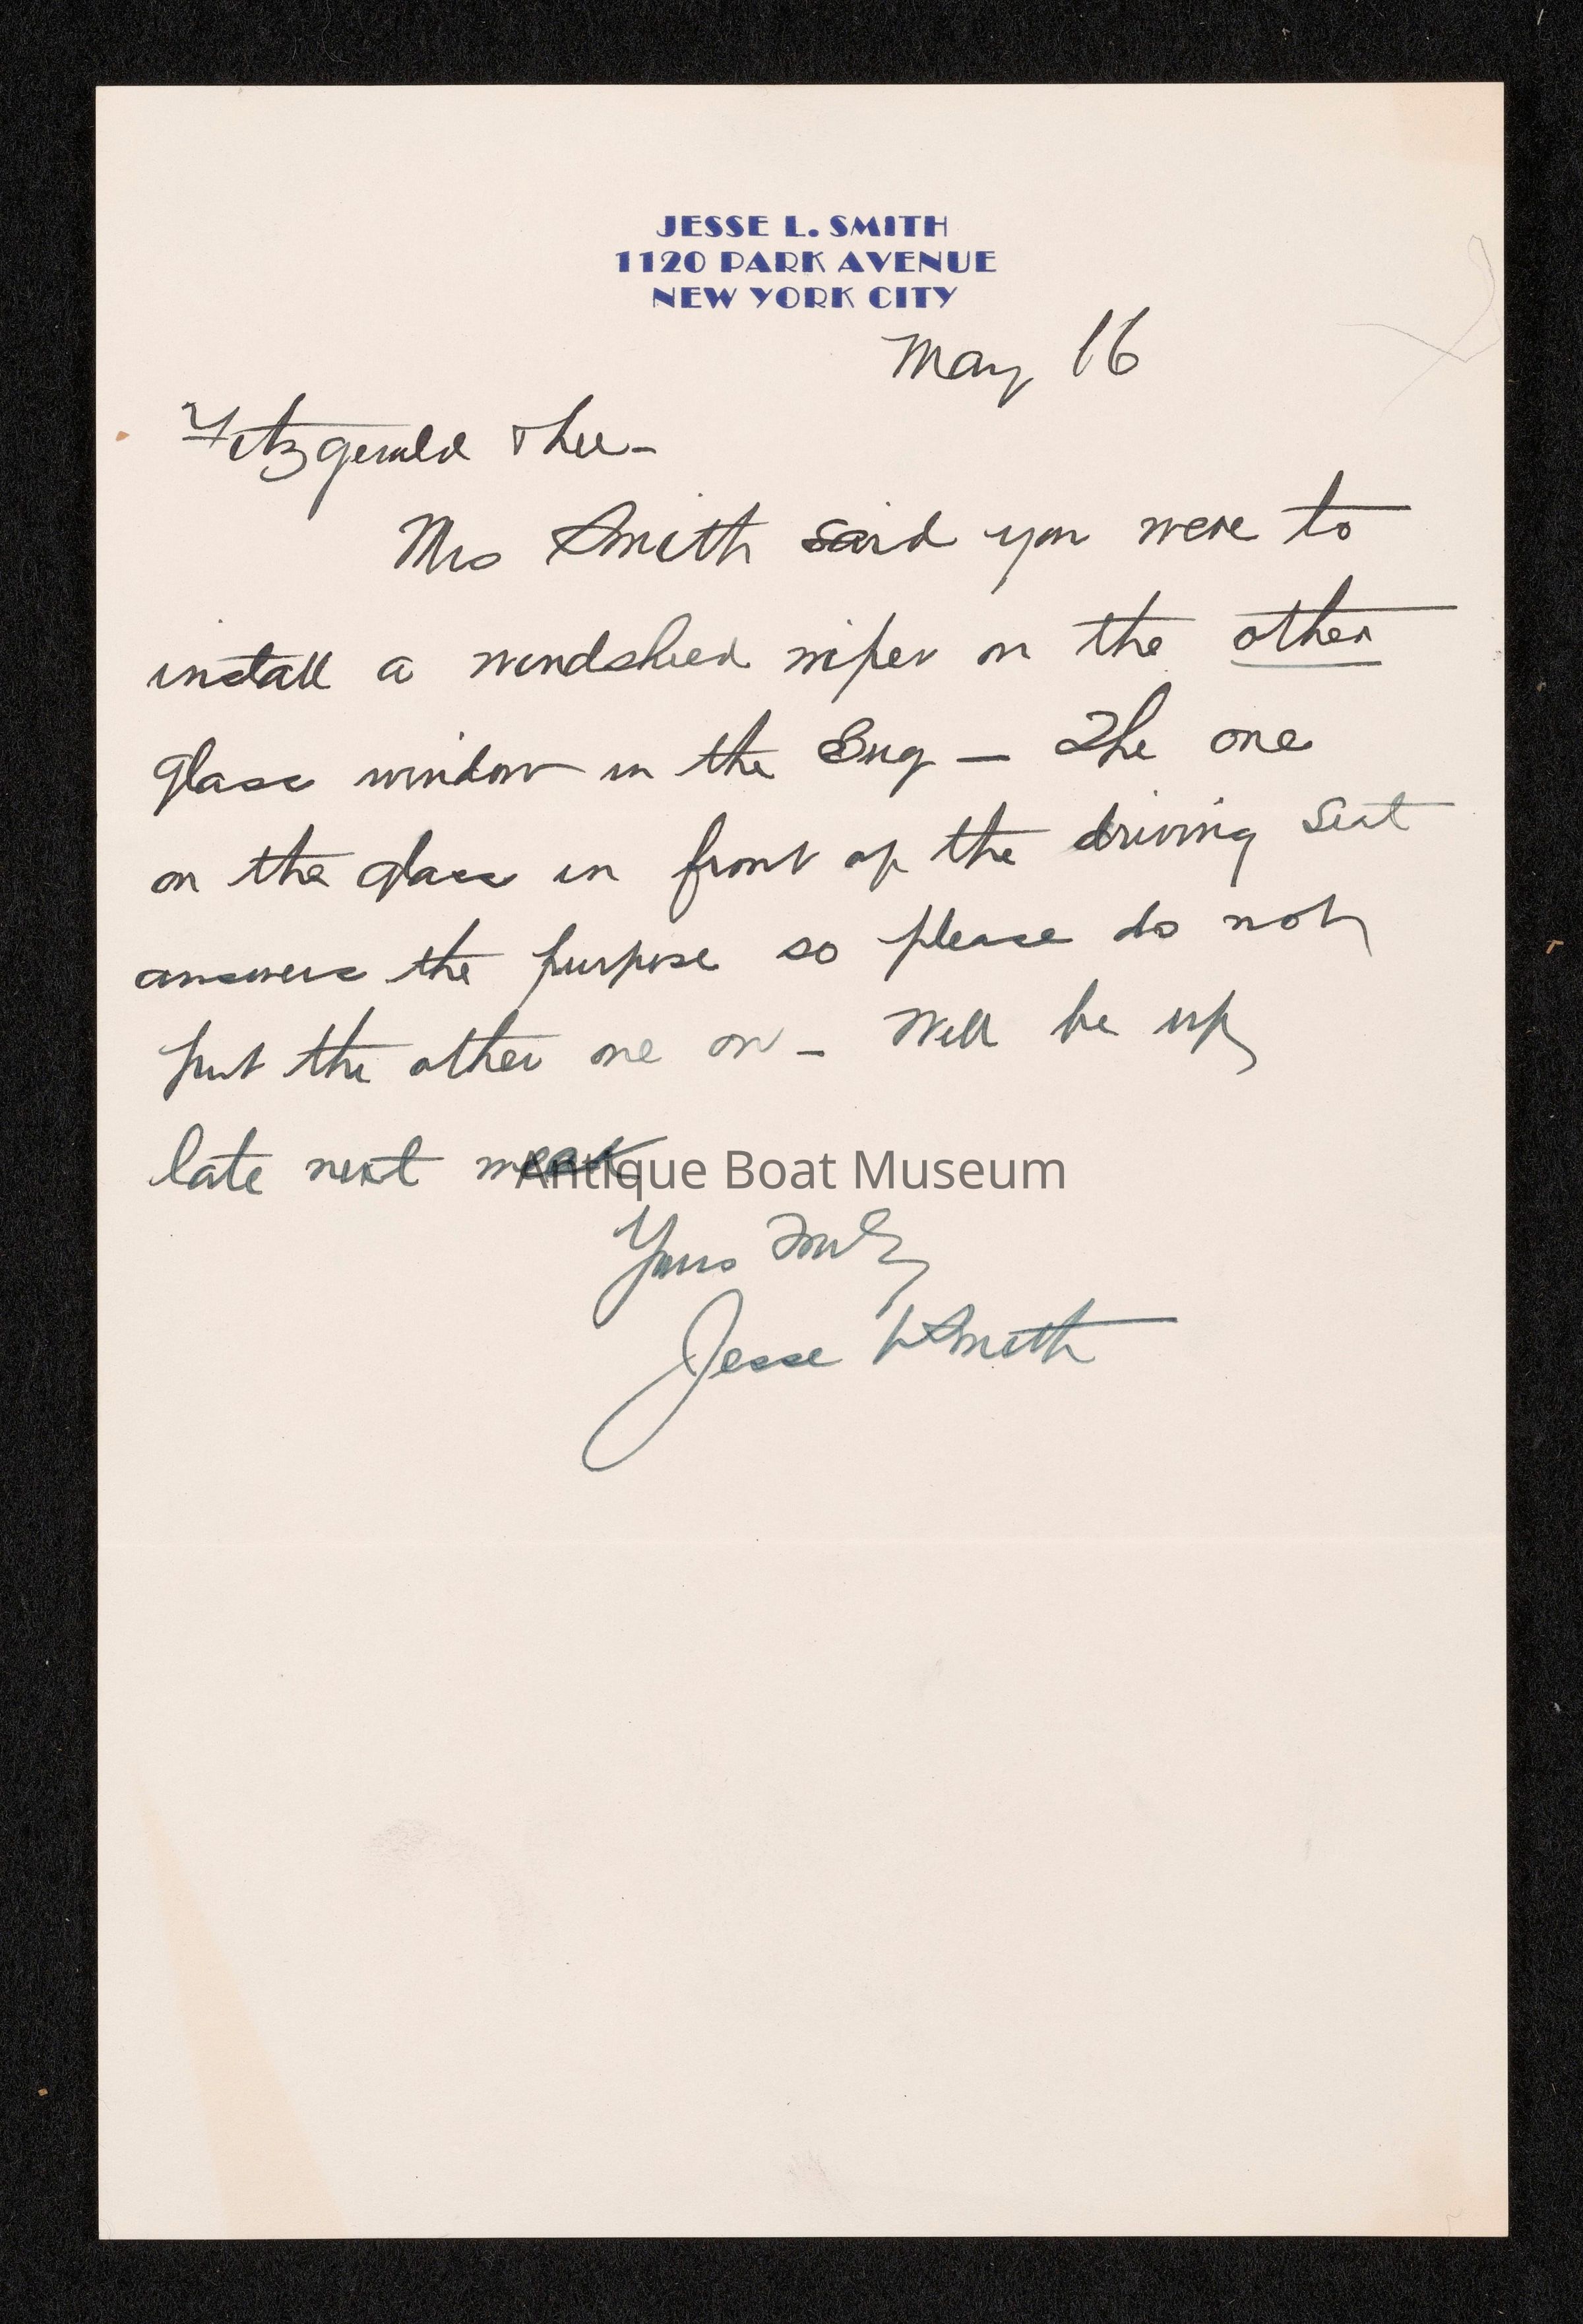 JESSE L. SMITH
1120 PARK AVENUE
NEW YORK CITY
May 16
Fitzgerald & Lee-
Mrs Smith said you were to
install a windshied wiper on the other
glass window in the Bug — The one
on the glass in front of the driving seat
answers the purpose so please do not
put the other one on — Will be up
late next week
Antique Boat Museum
Yours Truly
Jesse L Smith